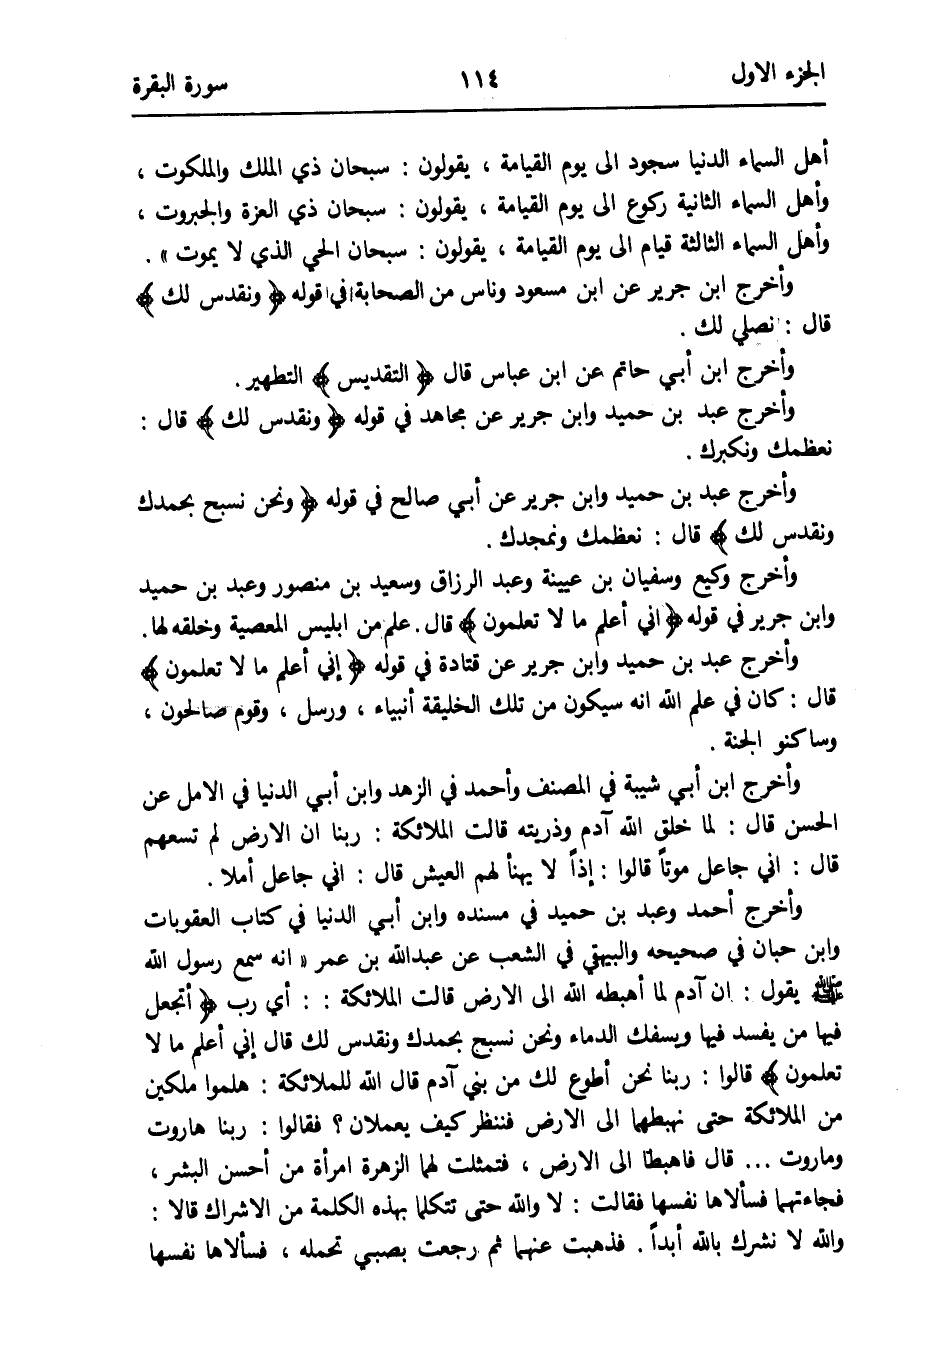 الجزء الاول ١١٤ سورة البقرة
أهل السماء الدنيا سجود الى يوم القيامة ، يقولون : سبحان ذي الملك والملكوت ،
وأهل السماء الثانية ركوع الى يوم القيامة ، يقولون : سبحان ذي العزة والجبروت ،
وأهل السماء الثالثة قيام الى يوم القيامة ، يقولون : سبحان الحي الذي لا يموت » .
وأخرج ابن جرير عن ابن مسعود وناس من الصحابة في قوله ﴿ ونقدس لك ﴾
قال : نصلي لك .
وأخرج ابن أبي حاتم عن ابن عباس قال ﴿ التقديس ﴾ التطهير .
وأخرج عبد بن حميد وابن جرير عن مجاهد في قوله ﴿ ونقدس لك ﴾ قال :
نعظمك ونكبرك .
وأخرج عبد بن حميد وابن جرير عن أبي صالح في قوله ﴿ ونحن نسبح بحمدك
ونقدس لك ﴾ قال : نعظمك ونمجدك .
وأخرج وكيع وسفيان بن عيينة وعبد الرزاق وسعيد بن منصور وعبد بن حميد
وابن جرير في قوله ﴿ اني أعلم ما لا تعلمون ﴾ قال . علم من ابليس المعصية وخلقه لها .
وأخرج عبد بن حميد وابن جرير عن قتادة في قوله ﴿ إني أعلم ما لا تعلمون ﴾
قال : كان في علم الله انه سيكون من تلك الخليقة أنبياء ، ورسل ، وقوم صالحون ،
وساكنو الجنة .
وأخرج ابن أبي شيبة في المصنف وأحمد في الزهد وابن أبي الدنيا في الامل عن
الحسن قال : لما خلق الله آدم وذريته قالت الملائكة : ربنا ان الارض لم تسعهم
قال : اني جاعل موتاً قالوا : إذاً لا يهنأ لهم العيش قال : اني جاعل أملا .
وأخرج أحمد وعبد بن حميد في مسنده وابن أبي الدنيا في كتاب العقوبات
وابن حبان في صحيحه والبيهقي في الشعب عن عبدالله بن عمر « انه سمع رسول الله
ﷺ يقول : ان آدم لما أهبطه الله الى الارض قالت الملائكة : : أي رب ﴿ أتجعل
فيها من يفسد فيها ويسفك الدماء ونحن نسبح بحمدك ونقدس لك قال إني أعلم ما لا
تعلمون ﴾ قالوا : ربنا نحن أطوع لك من بني آدم قال الله للملائكة : هلموا ملكين
من الملائكة حتى نهبطهما الى الارض فننظر كيف يعملان ؟ فقالوا : ربنا هاروت
وماروت ... قال فاهبطا الى الارض ، فتمثلت لهما الزهرة امرأة من أحسن البشر ،
فجاءتهما فسألاها نفسها فقالت : لا والله حتى تتكلما بهذه الكلمة من الاشراك قالا :
والله لا نشرك بالله أبداً . فذهبت عنهما ثم رجعت بصبي تحمله ، فسألاها نفسها